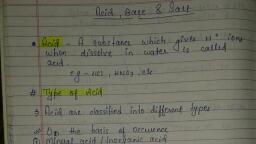 Acid, Base & Salt
• Acid - A substance which gives H⁺ ions
when dissolve in water is called
acid
eg - HCl, HNO₃, etc
# Type of Acid
Acid are classified into different types
On the basis of occurence
Mineral acid / Inorganic acid